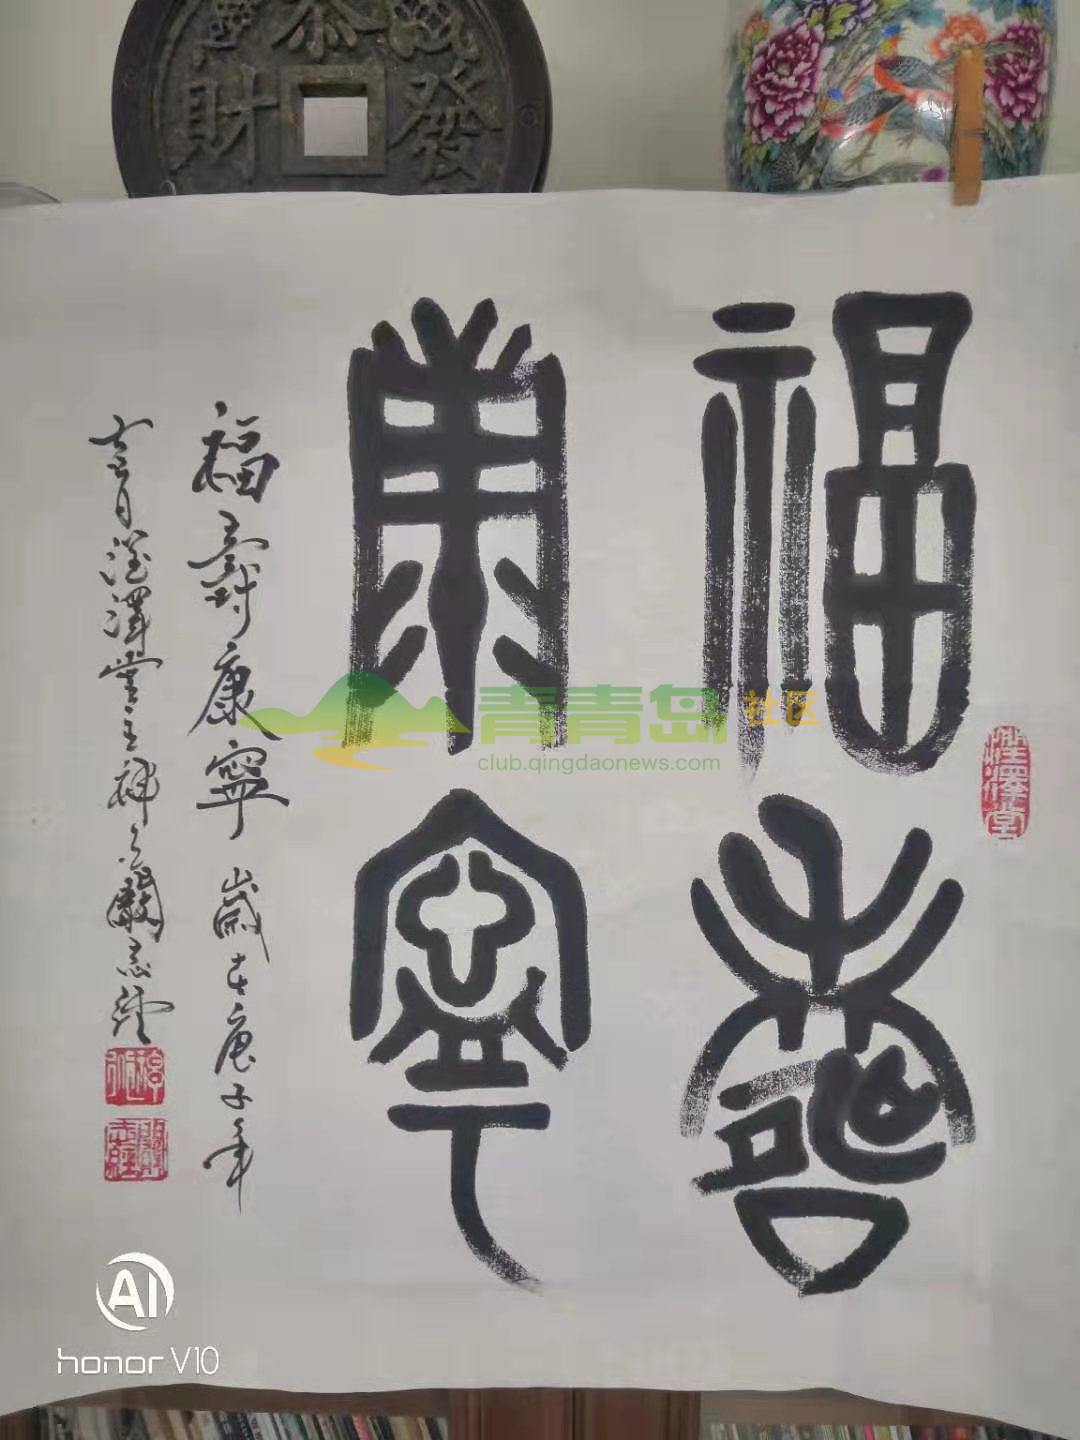 財
發
福壽
康寧
福壽康寧 歲在庚子年
澤堂主
澤堂
青青岛社区
club.qingdaonews.com
AI
honor V10